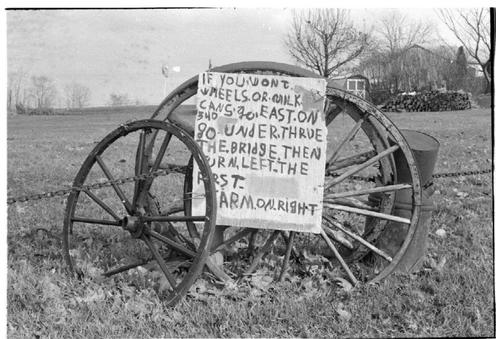 IF YOU WONT
WHEELS.OR.MILK.
CANS.GO.EAST.ON
340
GO.UNDER.THRUE
THE.BRIDGE.THEN
TURN.LEFT.THE
FIRST.
FARM.ON.RIGHT